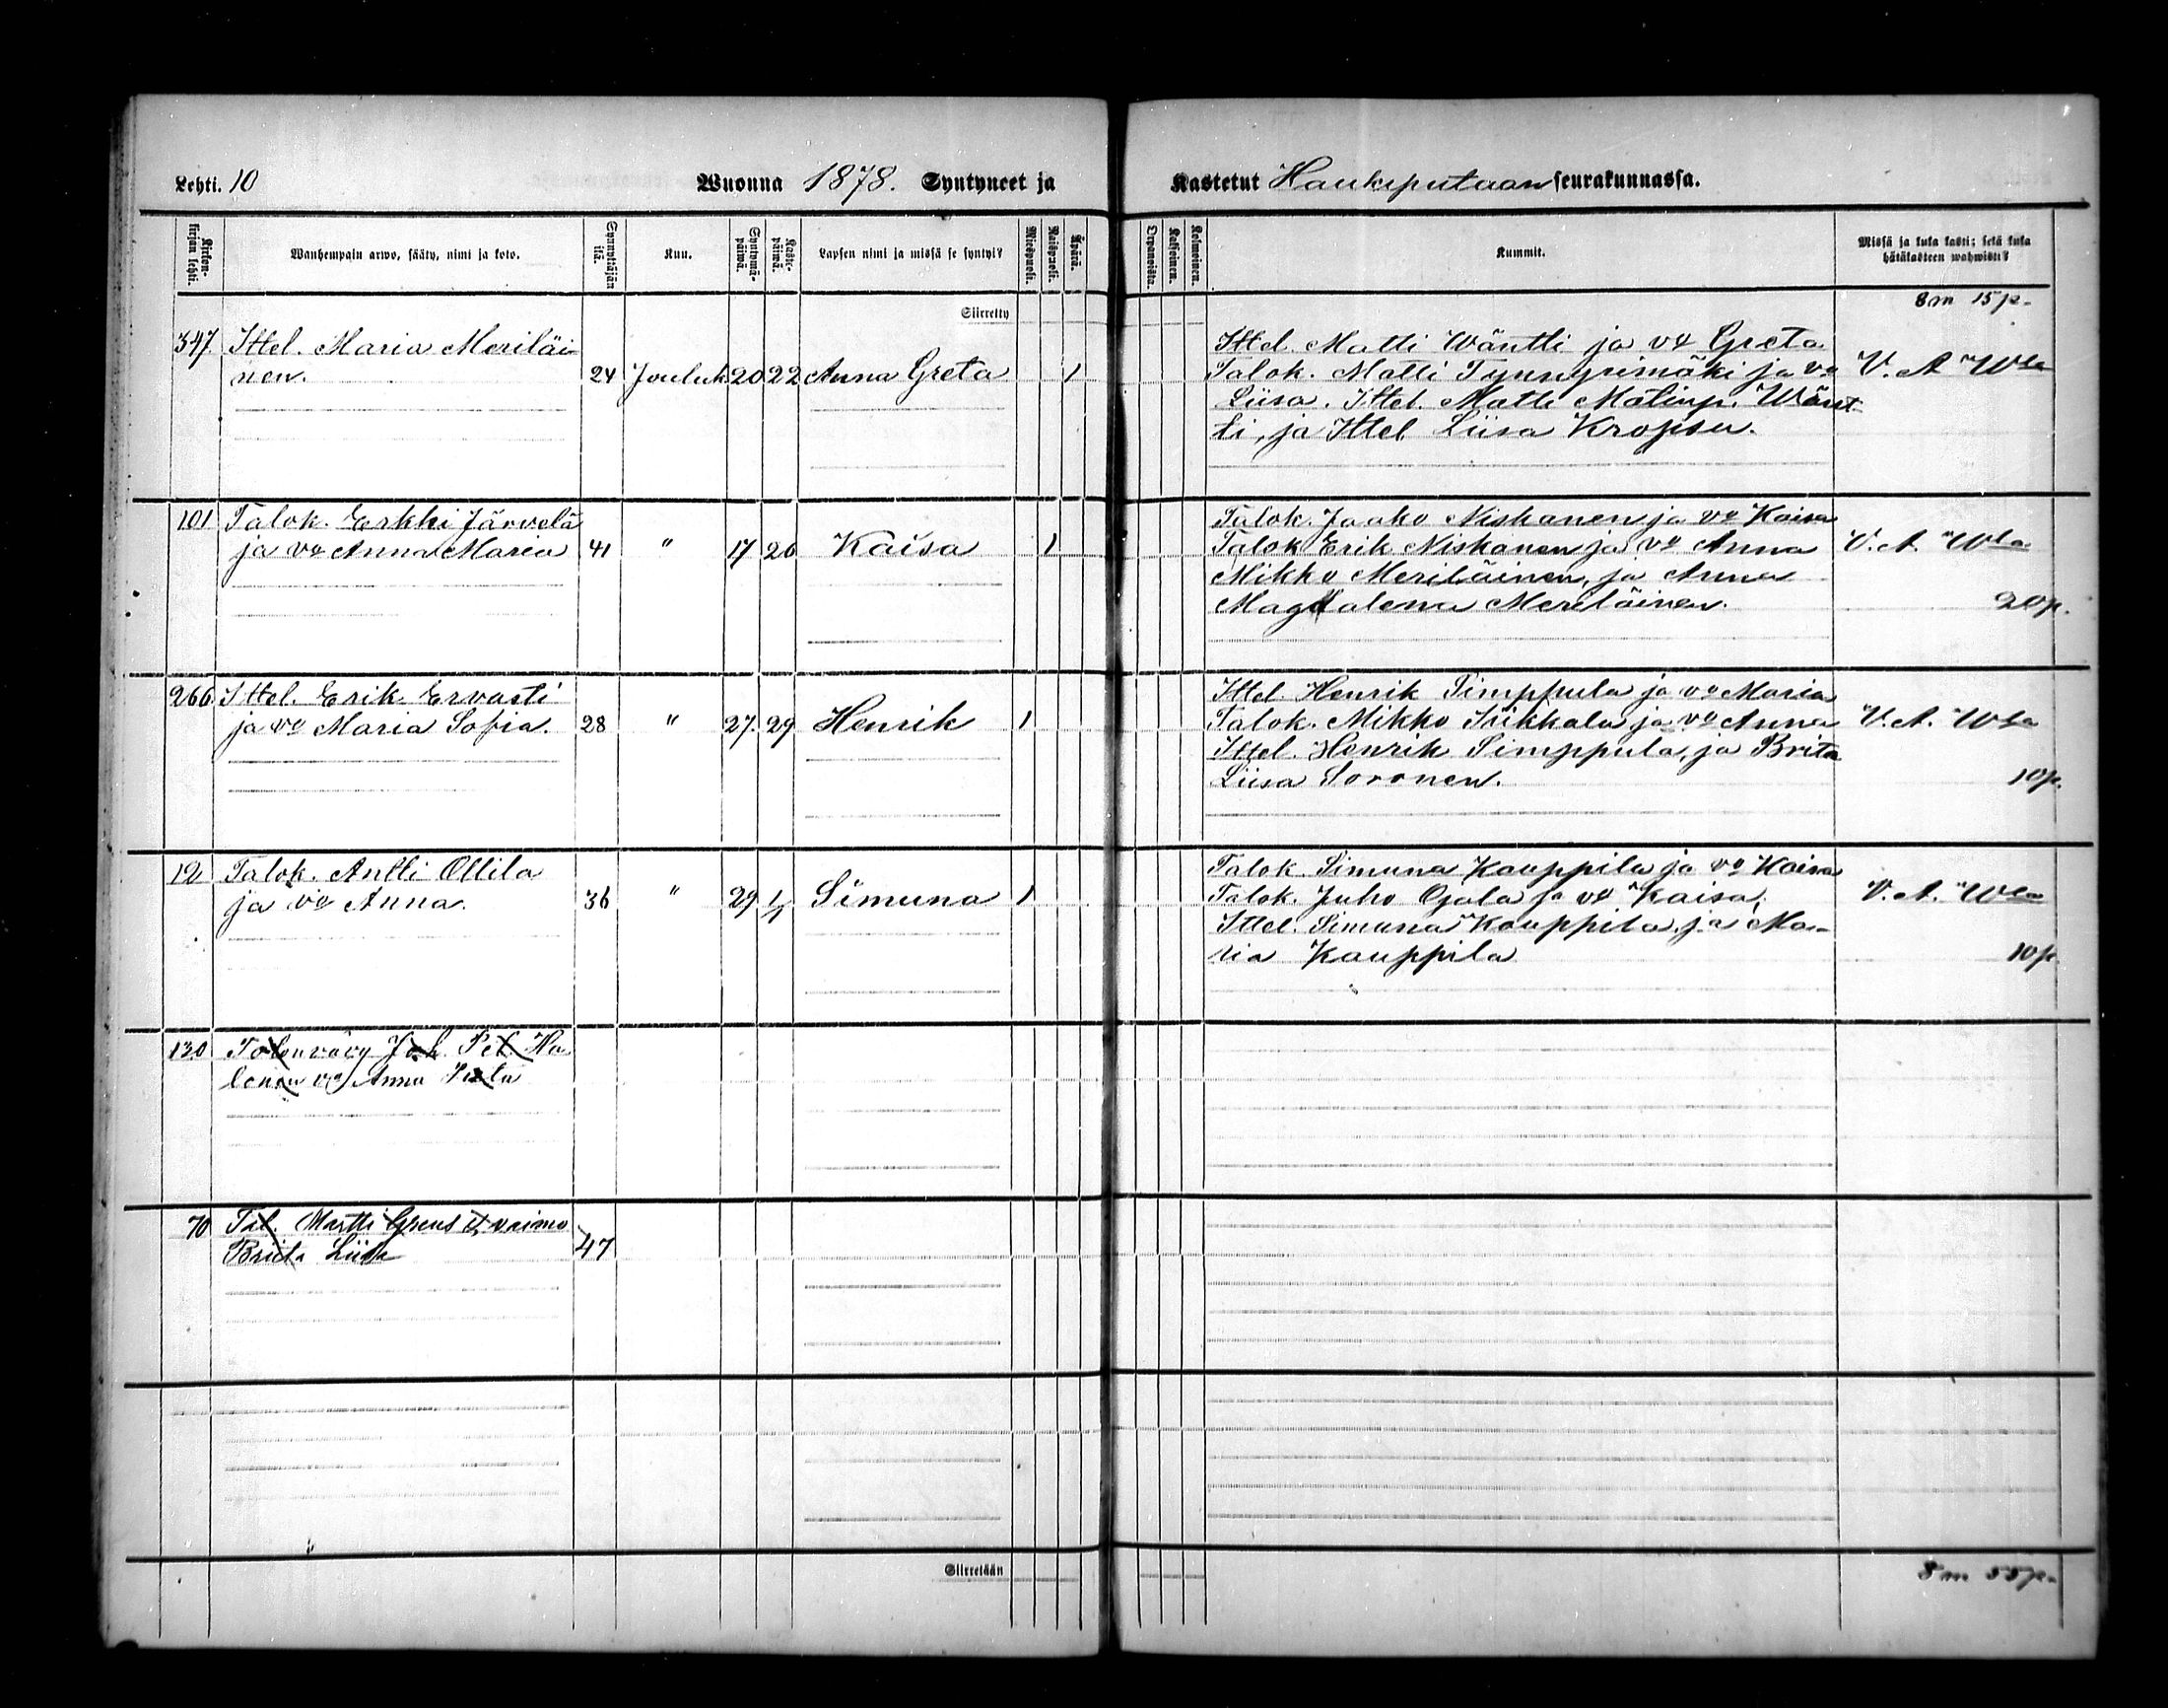 Lehti. 10
Wuonna 1878. Syntyneet ja
Kastetut Haukiputaan seurakunnassa.
Kirkon-
kirjan lehti.
Wanhempain arwo, sääty, nimi ja koto.
Synnyttäjän
ikä.
Kuu.
Syntymä-
päiwä.
Kaste-
päiwä.
Lapsen nimi ja missä se syntyi?
Miespuoli.
Naispuoli.
Äpärä.
Orpanoista.
Kaksoinen.
Kolmoinen.
Kummit.
Missä ja kuka kasti; sekä kuka
hätäkasteen wahwisti?
Siirretty
8 m 15 p.
347. Ittel. Maria Meriläi-
nen. 24 Jouluk 20 22 Anna Greta 1
Ittel. Matti Wäntti ja vo Greta
Talok. Matti Tynnyrimäki ja vo
Liisa. Ittel. Matti Matinp. Wänt
ti, ja Ittel Liisa Kropsu.
V. A. Wla
101 Talok. Erkki Järvelä
ja vo Anna Maria 41 " 17 26 Kaisa 1
Talok. Jaako Niskanen ja vo Kaisa
Talok Erik Niskanen ja vo Anna
Mikko Meriläinen, ja Anna
Magdalena Meriläinen.
V. A. Wla
20 p.
266. Ittel. Erik Ervasti
ja vo Maria Sofia. 28 " 27. 29 Henrik 1
Ittel. Henrik Timppula ja vo Maria
Talok. Mikko Jukkola ja vo Anna
Ittel. Henrik Simppula, ja Brita
Liisa Soronen.
V. A. Wla
10 p.
12 Talok. Antti Ollila
ja vo Anna. 36 " 29 1/1 Simuna 1
Talok. Simuna Kauppila ja vo Kaisa
Talok. Juho Ojala ja vo Kaisa,
Ittel. Simuna Kauppila, ja Ma-
ria Kauppila
V. A. Wla
10 p
130 Talonvävy Joh. Pet. Ha
lonen vo Anna
70 Tal. Martti vaimo
Briita Liisa 47
Siirretään
8 m 55 p.